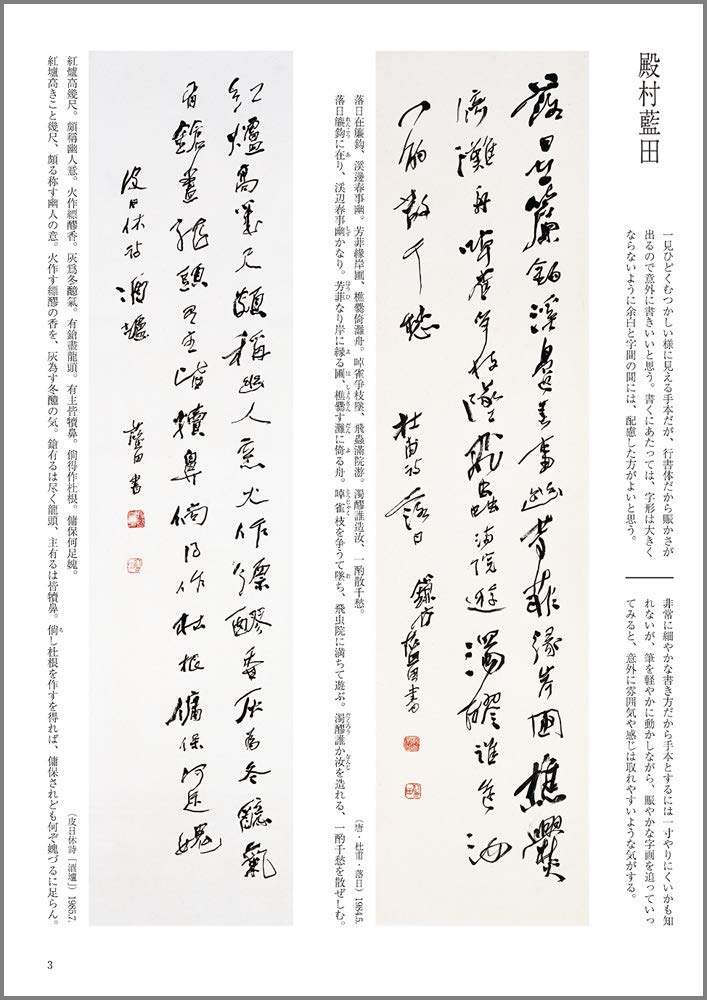 殿村藍田
一見ひどくむつかしい様に見える手本だが、行書体だから賑かさが
出るので意外に書きいいと思う。書くにあたっては、字形は大きく
ならないように余白と字間の間には、配慮した方がよいと思う。
非常に細やかな書き方だから手本とするには一寸やりにくいかも知
れないが、筆を軽やかに動かしながら、賑やかな字画を追っていっ
てみると、意外に雰囲気や感じは取れやすいような気がする。
落日在簾鉤溪邊春事幽芳菲緣岸圃樵爨
倚灘舟啅雀爭枝墜飛蟲滿院遊濁醪誰造汝
一酌散千愁 杜甫詩 落日 藍田書
落日在簾鉤、渓邊春事幽。芳菲緣岸圃、樵爨倚灘舟。啅雀爭枝墜、飛蟲滿院游。濁醪誰造汝、一酌散千愁。
落日簾鉤に在り、渓辺春事幽かなり。芳菲なり岸に縁る圃、樵爨す灘に倚る舟。啅雀枝を争うて墜ち、飛虫院に満ちて遊ぶ。濁醪誰か汝を造れる、一酌千愁を散ぜしむ。
（唐・杜甫・落日） 1984.5.
紅爐高幾尺頗稱幽人意火作縹醪香灰為冬醷氣
有鎗盡龍頭有主皆犢鼻倘得作杜根傭保何足媿
皮日休詩 酒壚 藍田書
紅爐高幾尺。頗稱幽人意。火作縹醪香。灰爲冬醷氣。有鎗盡龍頭。有主皆犢鼻。倘得作杜根。傭保何足媿。
紅壚高きこと幾尺、頗る称す幽人の意。火作す縹醪の香を、灰為す冬醷の気。鎗有るは尽く龍頭、主有るは皆犢鼻。倘し杜根を作すを得れば、傭保されども何ぞ媿づるに足らん。
（皮日休詩「酒壚」） 1985.7.
3